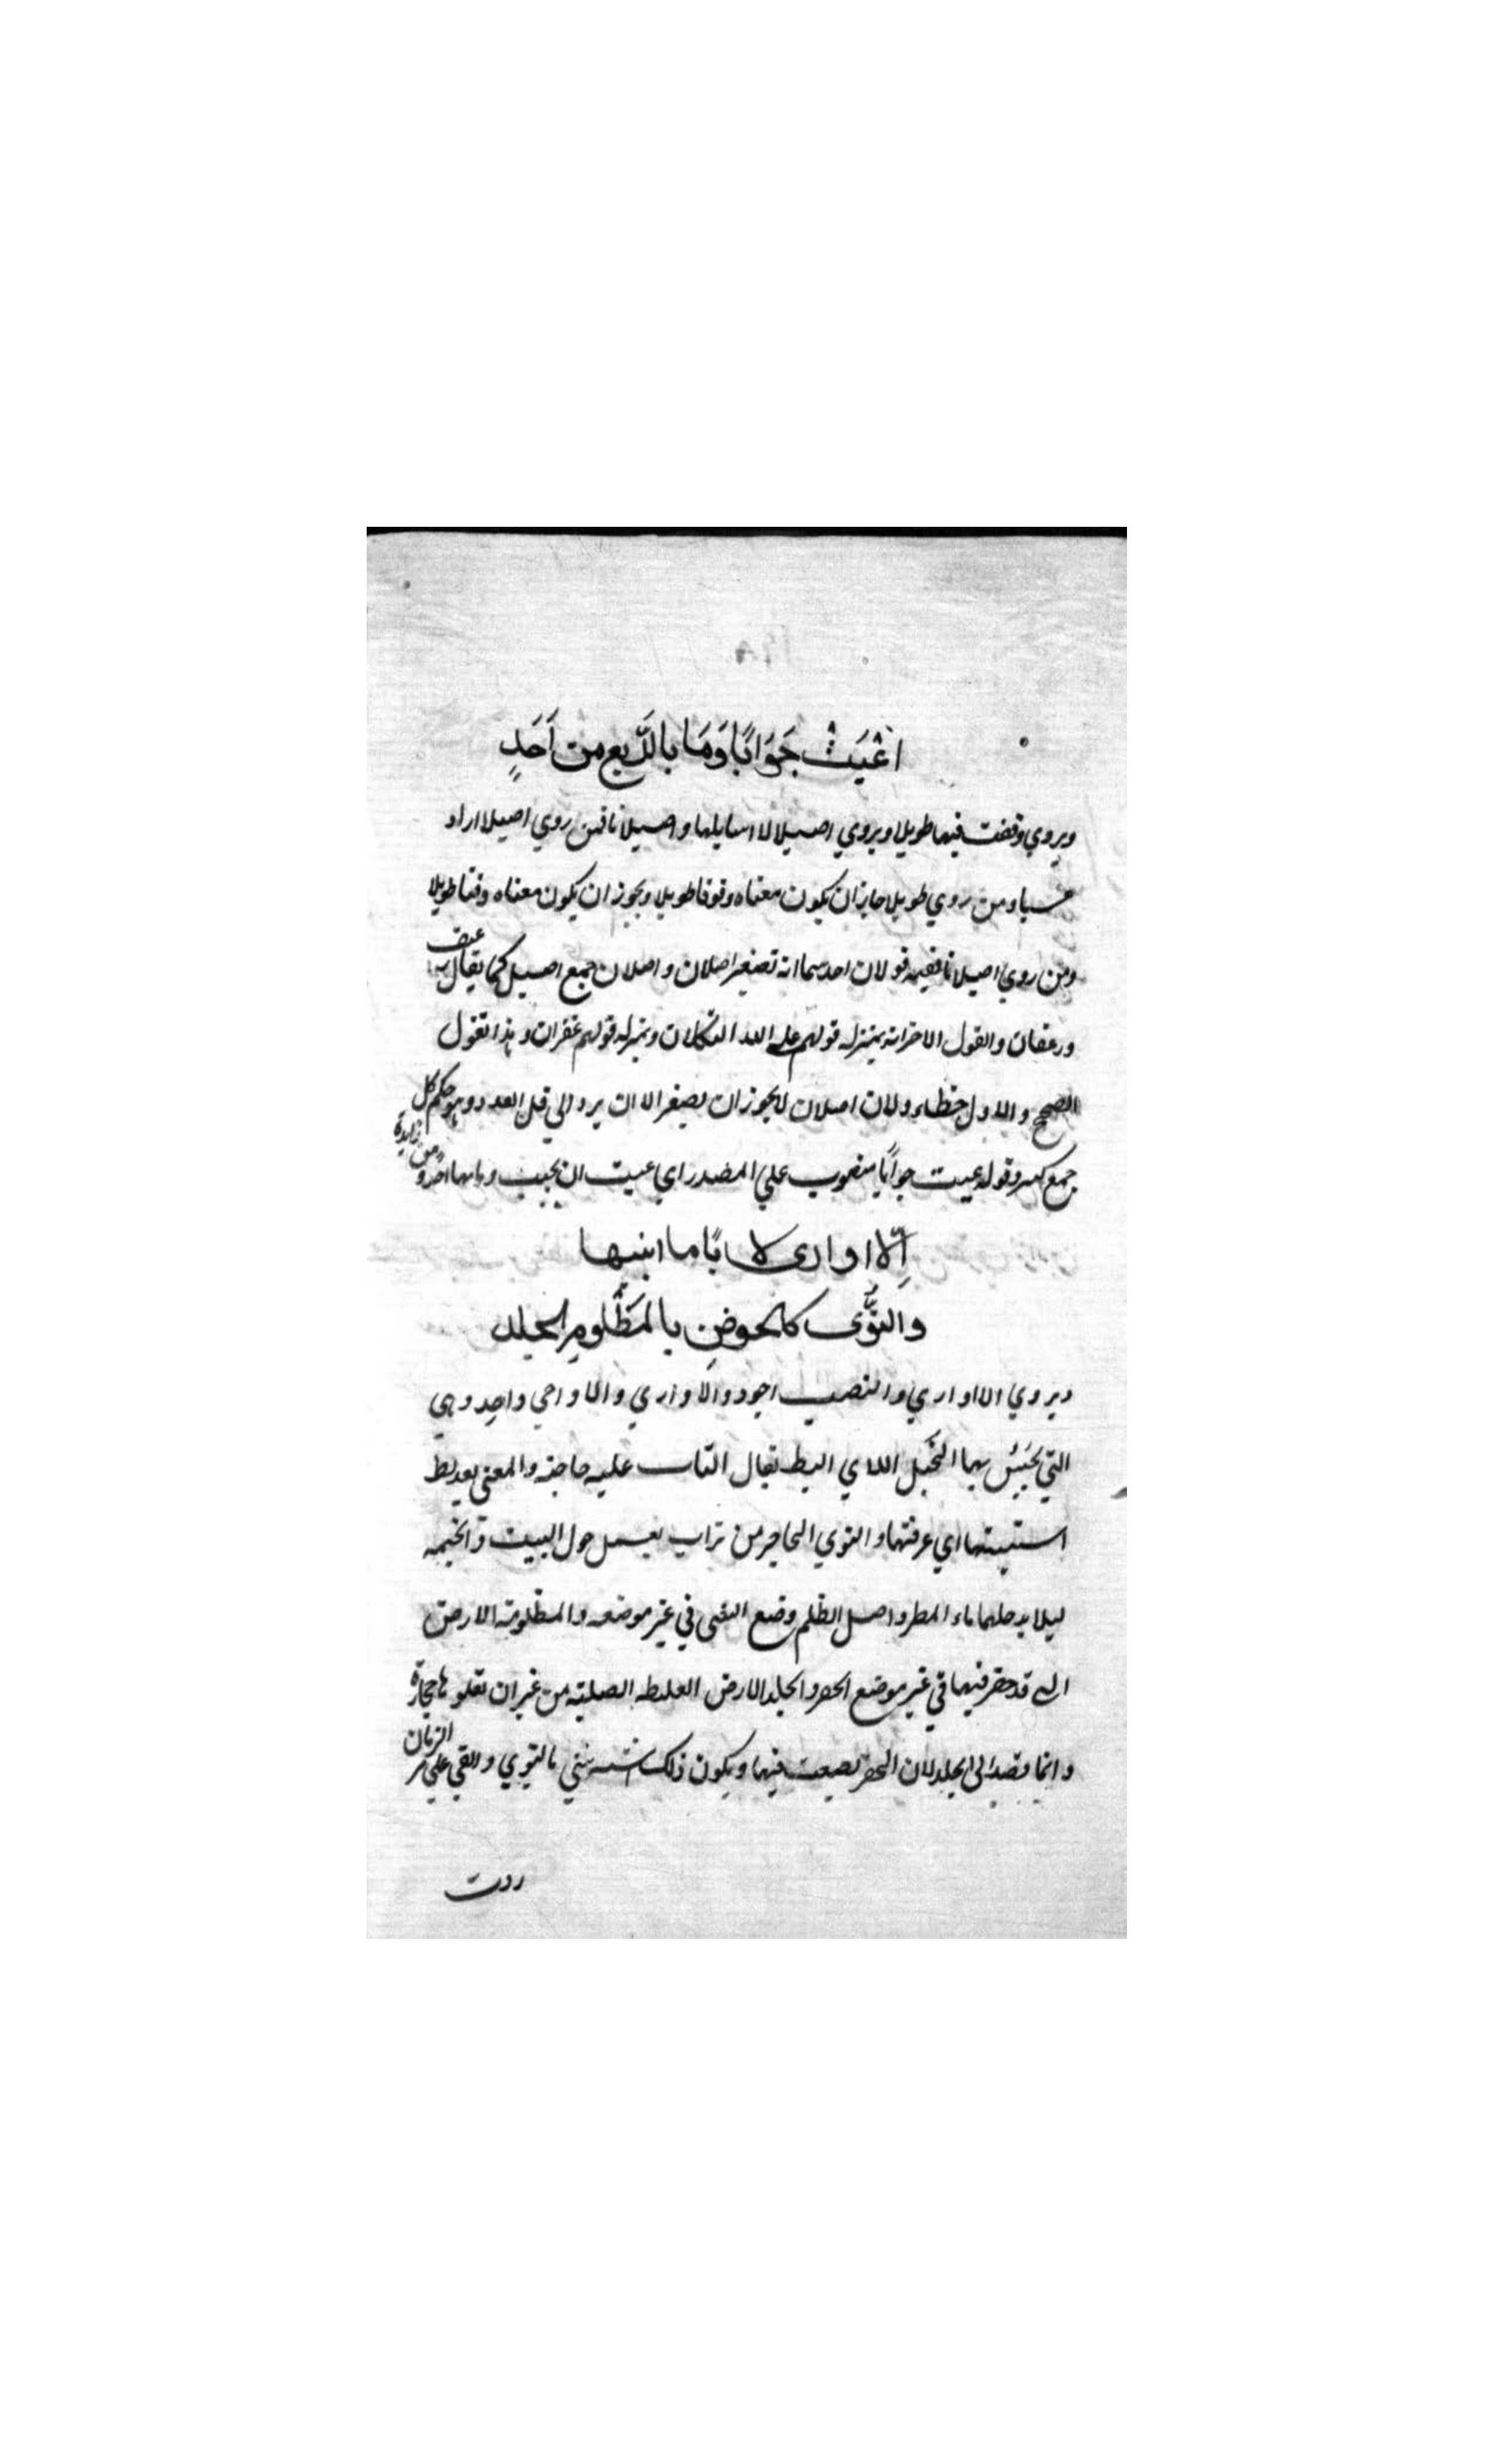 اعْيَتْ جَوَابًا وَمَا بالرَّبع من اَحَدٍ
ويروي وقفت فيها طويلا ويروي اصيلالا اسايلها واصيلانا فمن روي اصيلا اراد
عشيا ومن روي طويلا جاز ان يكون معناه وقوفا طويلا ويجوز ان يكون معناه وقتا طويلا
ومن روي اصيلانا ففيه قولان احدهما انه تصغير اصلان واصلان جمع اصيل كما يقال رغيف
ورغفان والقول الاخر انه بمنزله قولهم علي الله التكلان وبمنزله قولهم غفران وهذا القول
الصحيح والاول خطاء ولان اصلان لا يجوز ان يصغر الا ان يرد الي اقل العدد وهو حكم كل
جمع كسر وقوله عيت جوابًا منصوب علي المصدر اي عيت ان تجيب وما بها احد ومن زايدة
اِلّا اوارى لايًا ما ابينها
والنؤى كالحوضِ بالمَظْلومِ الجلد
ويروي الا اواري والنصب اجود والاواري والاواخي واحد وهي
التي يُحبَسُ بها الخَيل اللاي البط يقال التات عليه حاجته والمعنى بعد بط
استبينتها اي عرفتها والنوي الحاجر من تراب يعمل حول البيت والخيمه
ليلا يدخلها ماء المطر واصل الظلم وضع الشى في غير موضعه والمظلومة الارض
التي قد حفر فيها في غير موضع الحفر والجلد الارض الغليظه الصلبة من غير ان تعلوها حجارة
وانما قصد الى الجلد لان الحفر يصعب فيها ويكون ذلك اشبه شي بالنوي والقي علي مر الزمان
ردت